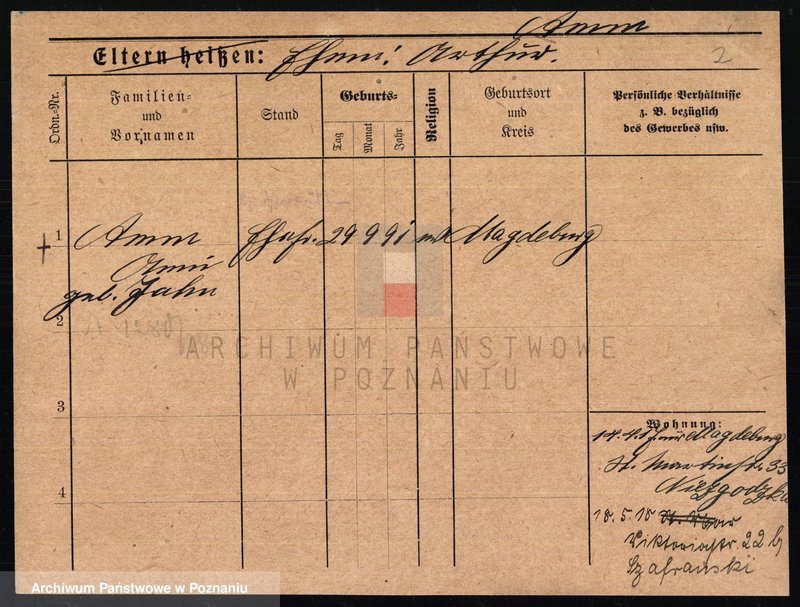 Amm
Eltern heißen: Ehem: Arthur.
2
Ordn.-Nr.
Familien-
und
Vornamen
Stand
Geburts-
Tag
Monat
Jahr
Religion
Geburtsort
und
Kreis
Persönliche Verhältnisse
z. B. bezüglich
des Gewerbes usw.
1 Amm Ehefr. 29 9 91 Magdeburg
geb. Jahn
2
3
4
ARCHIWUM PAŃSTWOWE
W POZNANIU
Wohnung:
Magdeburg
St. Martinstr. 33
18.5.18
Viktoriastr. 22 b
Szafranski
Archiwum Państwowe w Poznaniu